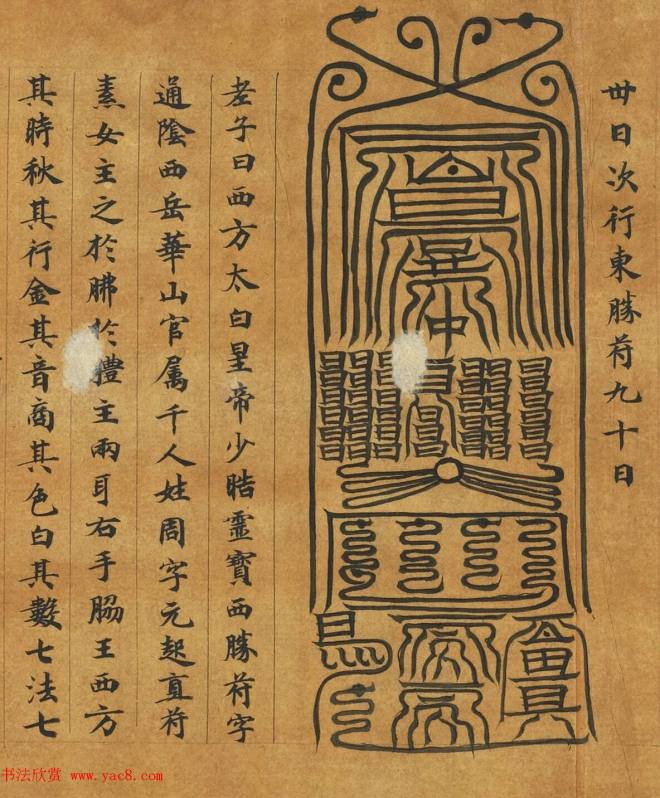 卌日次行東勝苻九十日
老子曰西方太白星帝少晧霊寳西勝苻字
通陰西岳華山官属千人姓周字元起直苻
素女主之於胏於軆主兩耳右手脇王西方
其時秋其行金其音商其色白其數七法七
书法欣赏 www.yac8.com